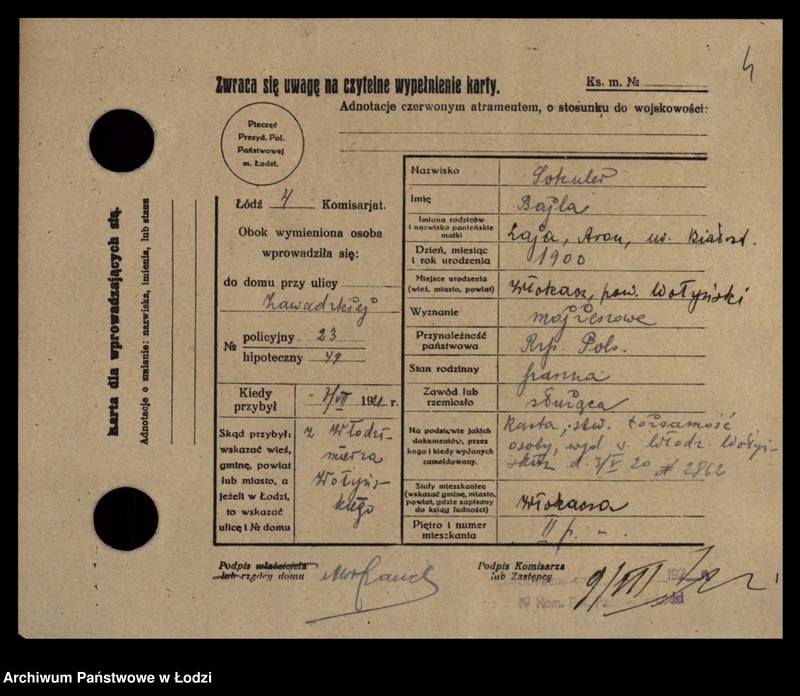 4
Zwraca się uwagę na czytelne wypełnienie karty.
Ks. m. №
Adnotacje czerwonym atramentem, o stosunku do wojskowości:
Pieczęć
Prezyd. Pol.
Państwowej
m. Łodzi.
Karta dla wprowadzających się.
Adnotacje o zmianie: nazwiska, imienia, lub stanu
Łódź 4 Komisarjat.
Obok wymieniona osoba
wprowadziła się:
do domu przy ulicy
Zawadzkiej
№ policyjny 23
hipoteczny 49
Kiedy przybył
192 r.
Skąd przybył:
wskazać wieś,
gminę, powiat
lub miasto, a
jeżeli w Łodzi,
to wskazać
ulicę i № domu
z Włodzi
mierza
Wołyńs
kiego
Nazwisko Sokuler
Imię Bajla
Imiona rodziców
i nazwisko panieńskie
matki
Łaja, Aron,
Dzień, miesiąc
i rok urodzenia
1900
Miejsce urodzenia
(wieś, miasto, powiat)
pow. Wołyński
Wyznanie mojżeszowe
Przynależność
państwowa
Rzp. Pols.
Stan rodzinny panna
Zawód lub
rzemiosło
służąca
Na podstawie jakich
dokumentów, przez
kogo i kiedy wydanych
zameldowany.
Karta, stw. tożsamość
osoby, wyd. Włodz. Wołyń-
20 # 2862
Stały mieszkaniec
(wskazać gminę, miasto,
powiat, gdzie zapisany
do ksiąg ludności)
Piętro i numer
mieszkania
II p.
Podpis właściciela
lub rządcy domu
Podpis Komisarza
lub Zastępcy
9/VIII
IV Kom.
Archiwum Państwowe w Łodzi